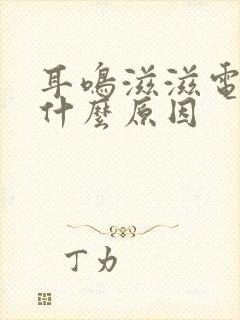 耳鳴滋滋電
什麼原因
丁力